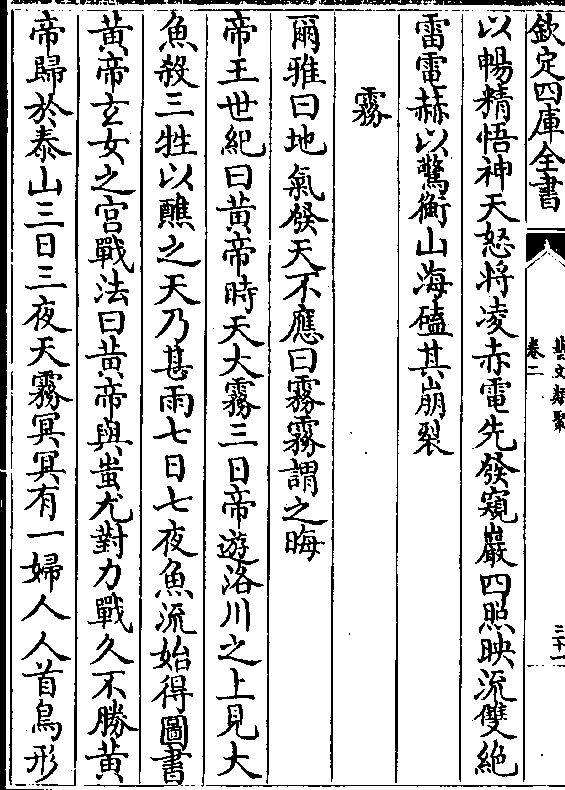 欽定四庫全書
藝文類聚
卷二
三十一
以暢精悟神天怒将凌赤電先發窺巖四照映流雙絶
雷電赫以驚衝山海磕其崩裂
霧
爾雅曰地氣發天不應曰霧霧謂之晦
帝王世紀曰黄帝時天大霧三日帝遊洛川之上見大
魚殺三牲以醮之天乃甚雨七日七夜魚流始得圖書
黄帝𤣥女之宫戰法曰黄帝與蚩尤對力戰久不勝黄
帝歸於泰山三日三夜天霧冥冥有一婦人人首鳥形